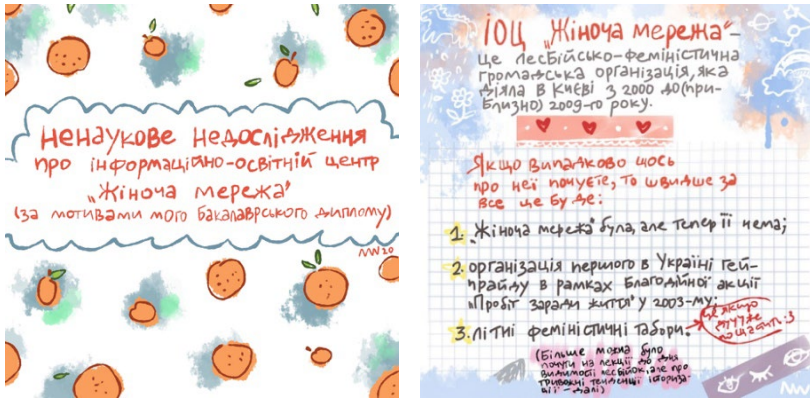 ненаукове недослідження
про інформаційно-освітній центр
„Жіноча мережа"
(за мотивами мого бакалаврського диплому)
NW20
ІОЦ „Жіноча мережа"–
це лесбійсько-феміністична
громадська організація, яка
діяла в Києві з 2000 до(при-
близно) 2009-го року.
Якщо випадково щось
про неї почуєте, то швидше за
все це буде:
1. „Жіноча мережа" була, але тепер її нема;
2. організація першого в Україні гей-
прайду в рамках Благодійної акції
„Пробіг заради життя" у 2003-му;
3. літні феміністичні табори.
це якщо
дууже
пощастить :3
(Більше можна було
почути на лекції до дня
видимості лесбійок, але про
тривожні тенденції історіза-
ції – далі)
NW